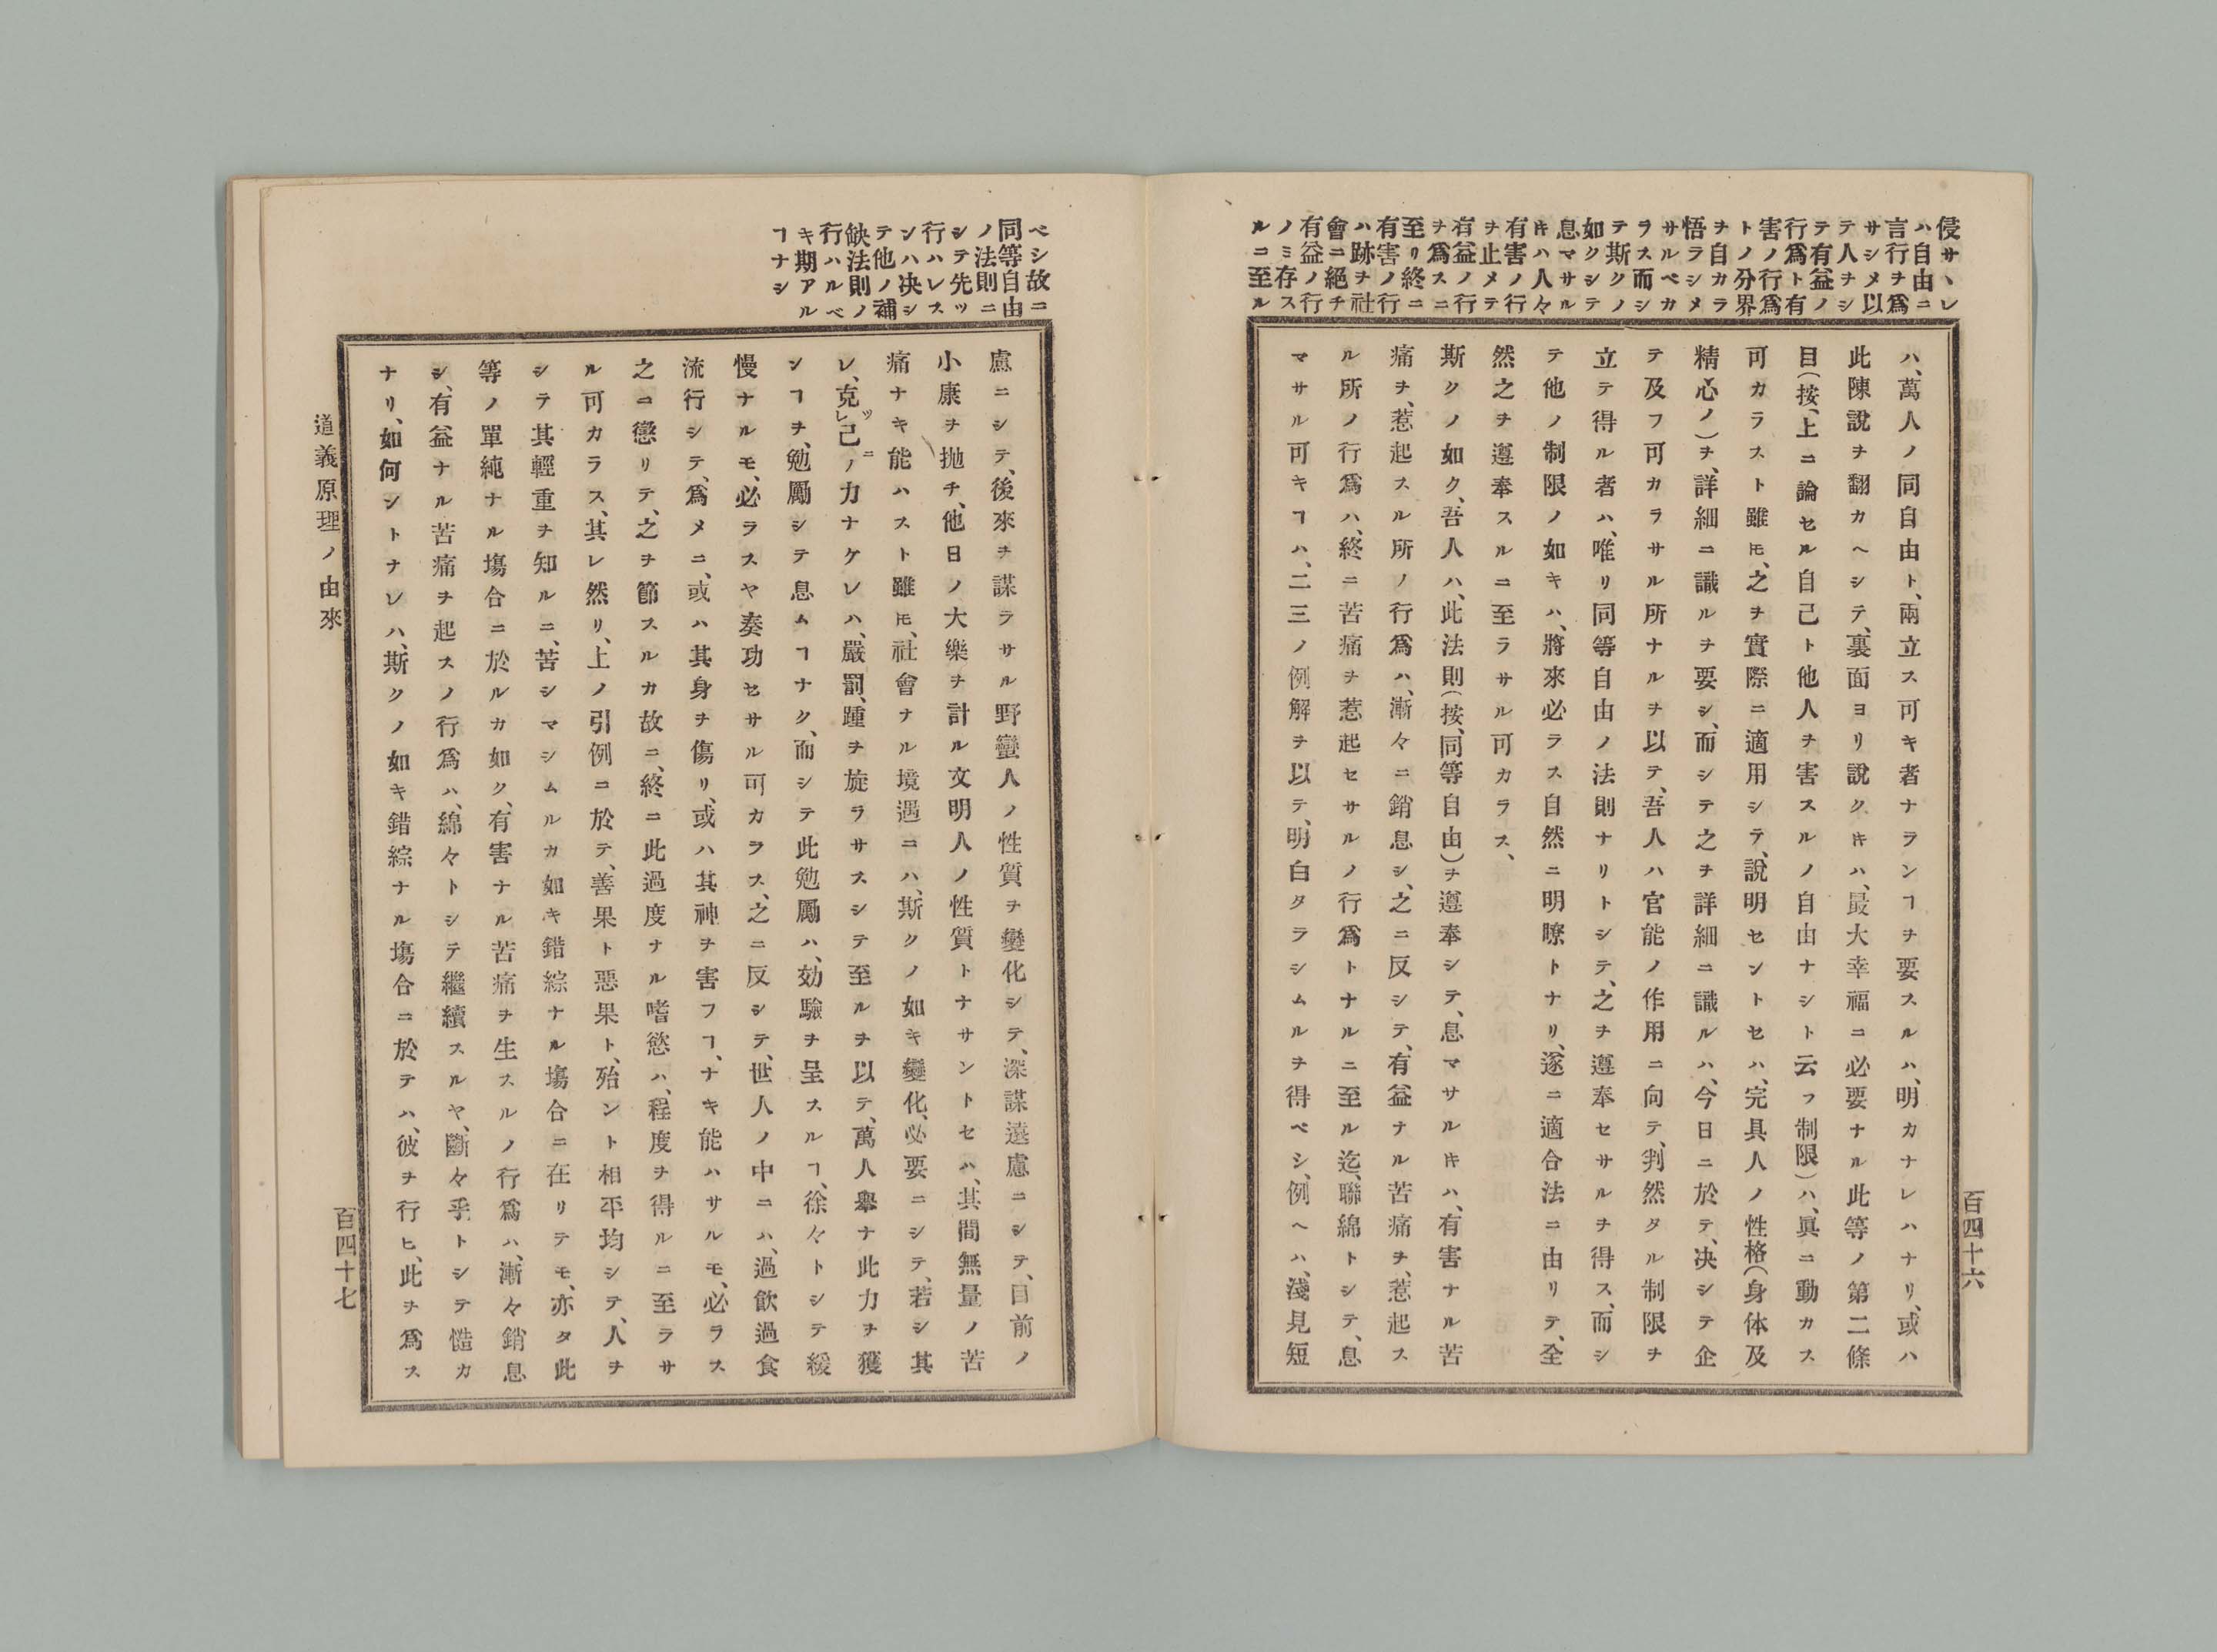 侵サヽレ
ハ自由ニ
言行ヲ爲
サシメ以
テ人ヲシ
テ有益ノ
行爲ト有
害ノ行爲
トノ分界
ヲ自カラ
悟ラシメ
サルベカ
ラス而シ
テ斯クノ
如クシテ
息マサル
キハ人々
有害ノ行
ヲ止メテ
有益ノ行
ヲ爲スニ
至リ終ニ
有害ノ行
ハ跡ヲ社
會ニ絕チ
有益ノ行
ノミ存ス
ルニ至ル
ハ、萬人ノ同自由ト、兩立ス可キ者ナランヿヲ要スルハ、明カナレハナリ、或ハ
此陳說ヲ翻カヘシテ、裏面ヨリ說クキハ、最大幸福ニ必要ナル此等ノ第二條
目（按、上ニ論セル自己ト他人ヲ害スルノ自由ナシト云フ制限）ハ、眞ニ動カス
可カラスト雖モ、之ヲ實際ニ適用シテ、說明セントセハ、完具人ノ性格（身体及
精心ノ）ヲ、詳細ニ識ルヲ要シ、而シテ之ヲ詳細ニ識ルハ、今日ニ於テ、决シテ企
テ及フ可カラサル所ナルヲ以テ、吾人ハ官能ノ作用ニ向テ、判然タル制限ヲ
立テ得ル者ハ、唯リ同等自由ノ法則ナリトシテ、之ヲ遵奉セサルヲ得ス、而シ
テ他ノ制限ノ如キハ、將來必ラス自然ニ明瞭トナリ、遂ニ適合法ニ由リテ、全
然之ヲ遵奉スルニ至ラサル可カラス、
斯クノ如ク、吾人ハ、此法則（按、同等自由）ヲ遵奉シテ、息マサルキハ、有害ナル苦
痛ヲ、惹起スル所ノ行爲ハ、漸々ニ銷息シ、之ニ反シテ、有益ナル苦痛ヲ、惹起ス
ル所ノ行爲ハ、終ニ苦痛ヲ惹起セサルノ行爲トナルニ至ル迄、聯綿トシテ、息
マサル可キヿハ、二三ノ例解ヲ以テ、明白タラシムルヲ得ベシ、例ヘハ、淺見短
百四十六
ベシ故ニ
同等自由
ノ法則ニ
シテ先ツ
行ハレス
ンハ决シ
テ他ノ補
缺法則ノ
行ハルベ
キ期アル
ヿナシ
慮ニシテ、後來ヲ謀ラサル野蠻人ノ性質ヲ變化シテ、深謀遠慮ニシテ、目前ノ
小康ヲ抛チ、他日ノ大樂ヲ計ル文明人ノ性質トナサントセハ、其間無量ノ苦
痛ナキ能ハスト雖モ、社會ナル境遇ニハ、斯クノ如キ變化、必要ニシテ、若シ其
レ、克レッ己ニノ力ナケレハ、嚴罰、踵ヲ旋ラサスシテ至ルヲ以テ、萬人擧ナ此力ヲ獲
ンヿヲ、勉勵シテ息ムヿナク、而シテ此勉勵ハ、効驗ヲ呈スルヿ、徐々トシテ緩
慢ナルモ、必ラスヤ奏功セサル可カラス、之ニ反シテ、世人ノ中ニハ、過飮過食
流行シテ、爲メニ、或ハ其身ヲ傷リ、或ハ其神ヲ害フヿ、ナキ能ハサルモ、必ラス
之ニ懲リテ、之ヲ節スルカ故ニ、終ニ此過度ナル嗜慾ハ、程度ヲ得ルニ至ラサ
ル可カラス、其レ然リ、上ノ引例ニ於テ、善果ト惡果ト、殆ント相平均シテ、人ヲ
シテ其輕重ヲ知ルニ、苦シマシムルカ如キ錯綜ナル塲合ニ在リテモ、亦タ此
等ノ單純ナル塲合ニ於ルカ如ク、有害ナル苦痛ヲ生スルノ行爲ハ、漸々銷息
シ、有益ナル苦痛ヲ起スノ行爲ハ、綿々トシテ繼續スルヤ、斷々乎トシテ慥カ
ナリ、如何シトナレハ、斯クノ如キ錯綜ナル塲合ニ於テハ、彼ヲ行ヒ、此ヲ爲ス
道義原理ノ由來
百四十七